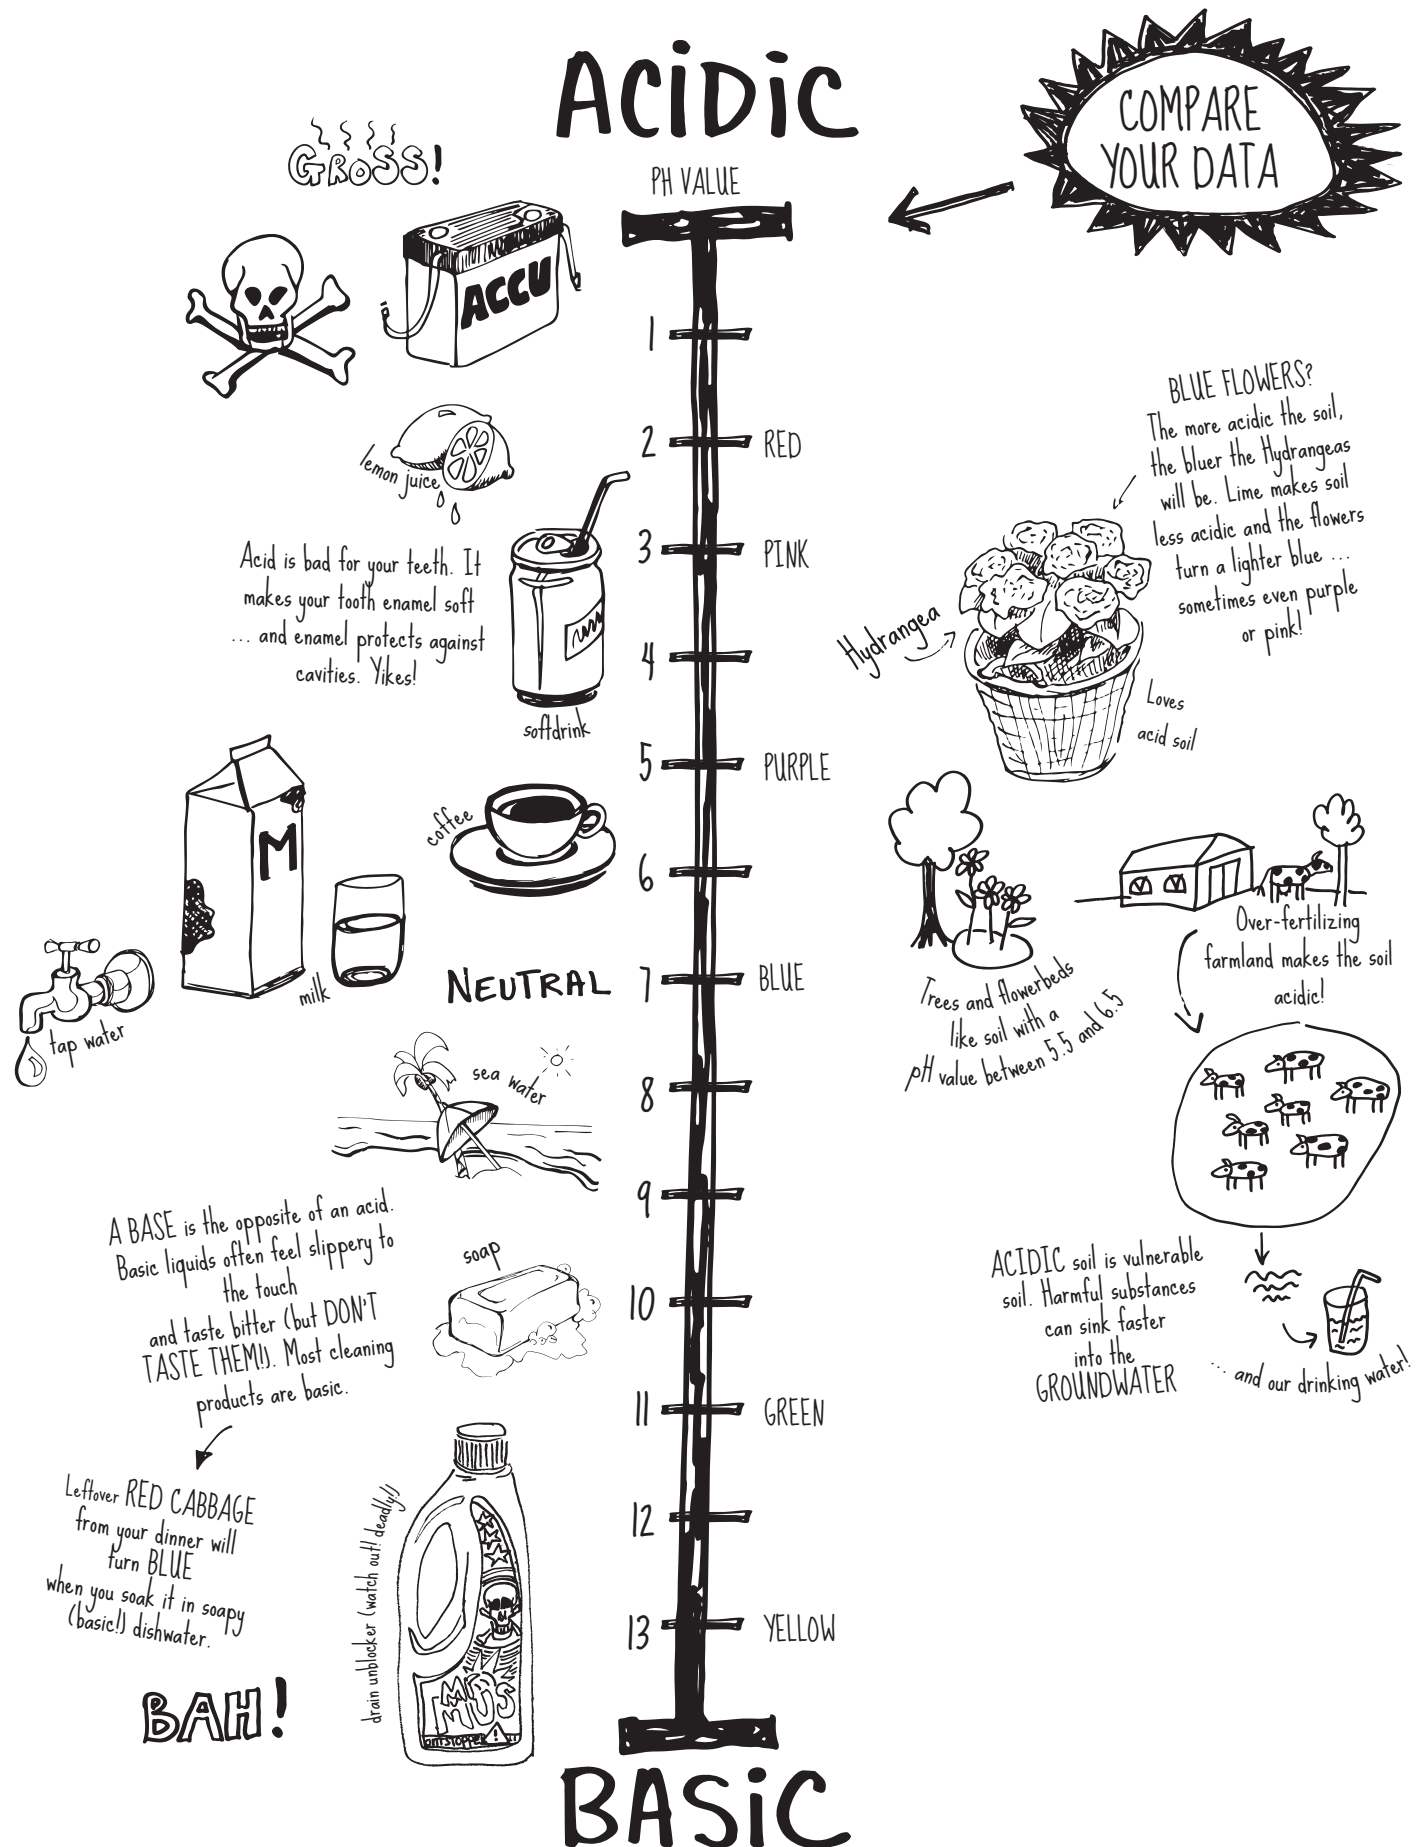 ACIDIC
COMPARE
YOUR DATA
GROSS!
PH VALUE
ACCU
1
2 RED
3 PINK
4
5 PURPLE
6
NEUTRAL 7 BLUE
8
9
10
11 GREEN
12
13 YELLOW
lemon juice
Acid is bad for your teeth. It
makes your tooth enamel soft
... and enamel protects against
cavities. Yikes!
softdrink
coffee
M
milk
tap water
sea water
A BASE is the opposite of an acid.
Basic liquids often feel slippery to
the touch
and taste bitter (but DON'T
TASTE THEM!). Most cleaning
products are basic.
soap
Leftover RED CABBAGE
from your dinner will
turn BLUE
when you soak it in soapy
(basic!) dishwater.
drain unblocker (watch out! deadly!)
BAH!
BLUE FLOWERS?
The more acidic the soil,
the bluer the Hydrangeas
will be. Lime makes soil
less acidic and the flowers
turn a lighter blue ...
sometimes even purple
or pink!
Hydrangea
Loves
acid soil
Trees and flowerbeds
like soil with a
pH value between 5.5 and 6.5
Over-fertilizing
farmland makes the soil
acidic!
ACIDIC soil is vulnerable
soil. Harmful substances
can sink faster
into the
GROUNDWATER
... and our drinking water!
BASIC